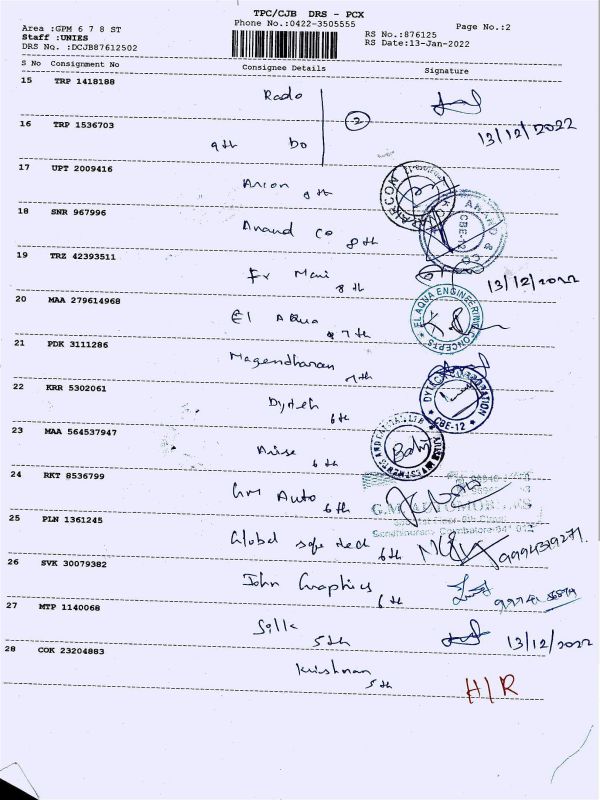 TPC/CJB DRS - PCX
Area :GPM 6 7 8 ST Phone No.:0422-3505555 Page No.:2
Staff :UNIES RS No.:876125
DRS No. :DCJB87612502 RS Date:13-Jan-2022
S No Consignment No Consignee Details Signature
15 TRP 1418188 Rado
2
13/12/2022
16 TRP 1536703 9th Do
17 UPT 2009416 Arion 8th
AIRCON
18 SNR 967996 Anand Co 8th
ANAND & CO
CBE-12
19 TRZ 42393511 Er Mani 8th
13/12/2022
20 MAA 279614968 El Aqua 7th
EL AQUA ENGINEERING CONCEPTS
21 PDK 3111286 Magendharan 7th
22 KRR 5302061 Dyteh 6th
CBE-12
23 MAA 564537947 Arise 6th
24 RKT 8536799 Gm Auto 6th
G.M. AUTOMOBILES
Coimbatore
25 PLN 1361245 Global safe tech 6th
26 SVK 30079382 John Graphics 6th
27 MTP 1140068 Silk 5th 13/12/2022
28 COK 23204883 Krishnan 5th H/R